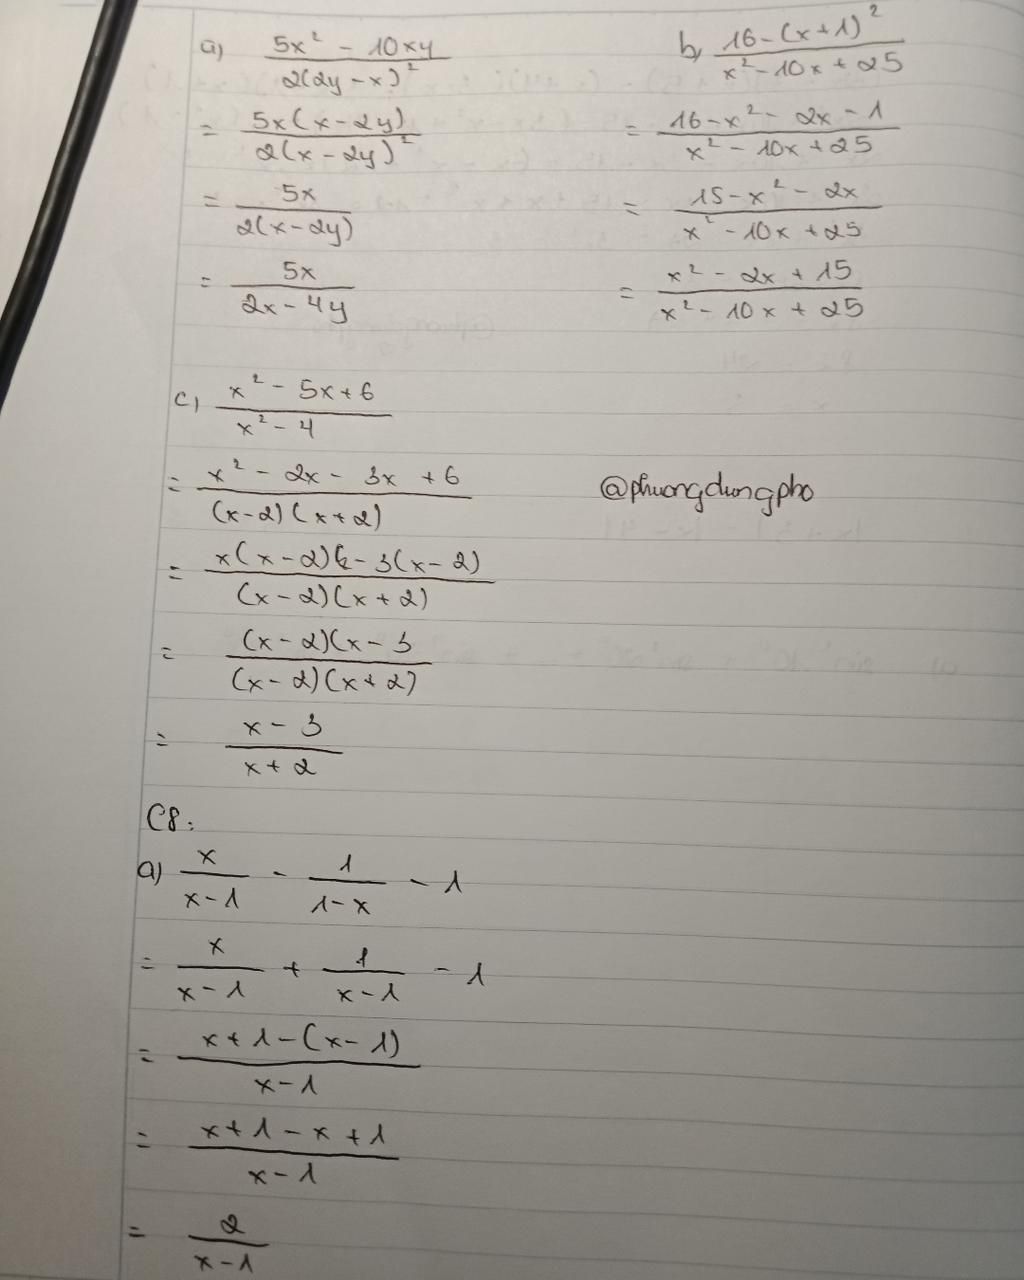 a) (5x² - 10xy)/(2(2y - x)²)
= (5x(x - 2y))/(2(x - 2y)²)
= (5x)/(2(x - 2y))
= (5x)/(2x - 4y)
b, (16 - (x + 1)²)/(x² - 10x + 25)
= (16 - x² - 2x - 1)/(x² - 10x + 25)
= (15 - x² - 2x)/(x² - 10x + 25)
= (x² - 2x + 15)/(x² - 10x + 25)
c, (x² - 5x + 6)/(x² - 4)
= (x² - 2x - 3x + 6)/((x - 2)(x + 2))
= (x(x - 2) - 3(x - 2))/((x - 2)(x + 2))
@phuongdungpho
= ((x - 2)(x - 3)/((x - 2)(x + 2))
= (x - 3)/(x + 2)
C8:
a) x/(x - 1) - 1/(1 - x) - 1
= x/(x - 1) + 1/(x - 1) - 1
= (x + 1 - (x - 1))/(x - 1)
= (x + 1 - x + 1)/(x - 1)
= 2/(x - 1)